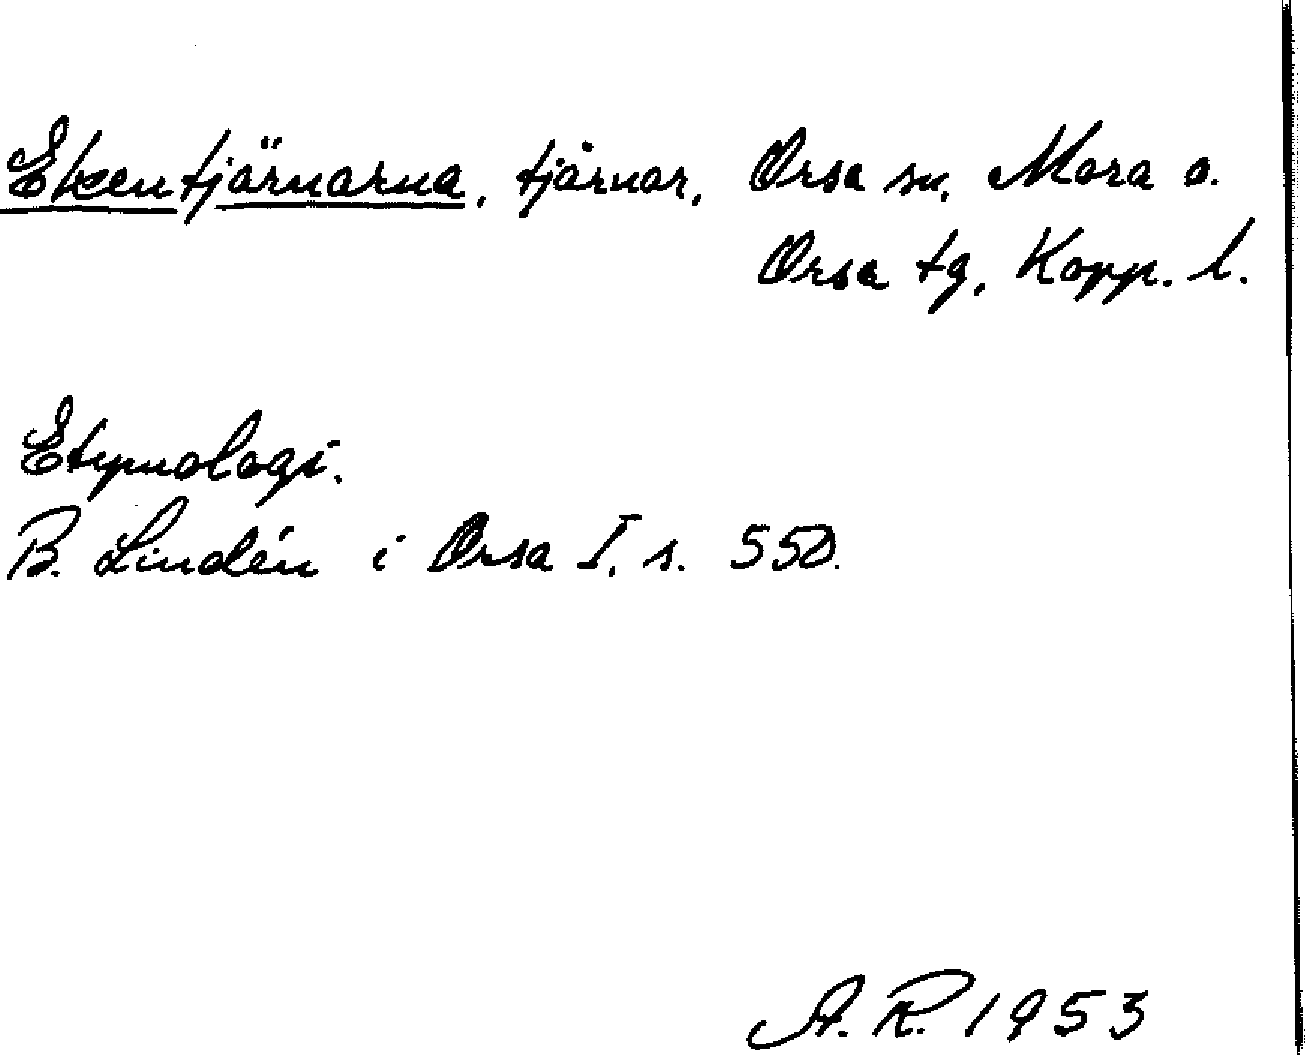 Ekentjärnarna, tjärnar, Orsa sn, Mora o.
Orsa tg, Kopp. l.
Etymologi.
B. Lindén i Orsa I, s. 550.
A. R. 1953